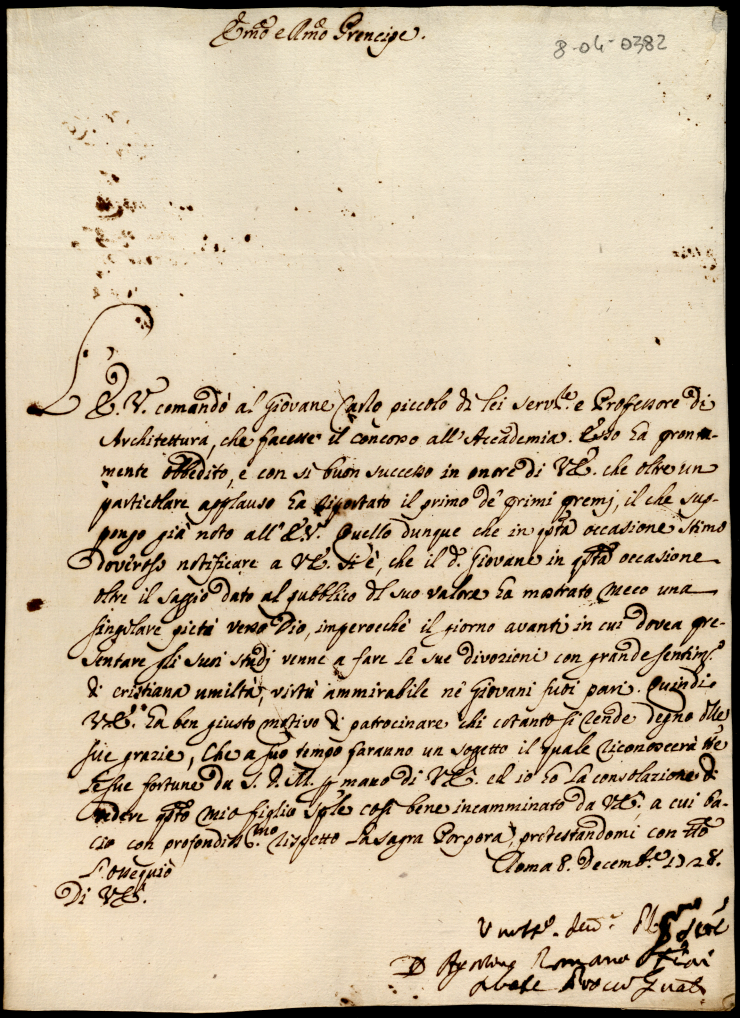 Em̃o e Rm̃o Prencipe.
8-04-0382
L'E.V. comandò al Giovane Carlo piccolo di lei serv.le e Professore di
Architettura, che facesse il concorso all'Accademia. Esso ha pronta-
mente obbedito, e con si buon successo in onore di V.E. che oltre un
particolare applauso ha riportato il primo de' primi premj, il che sup-
pongo già noto all'E.V. Quello dunque che in q̃sta occasione stimo
doveroso notificare a V.E. si è, che il d.o Giovane in q̃sta occasione
oltre il saggio dato al pubblico del suo valore ha mostrato meco una
singolare pietà verso Dio, imperocchè il giorno avanti in cui dovea pre-
sentare gli suoi studj venne a fare le sue divozioni con grande sentim.o
di cristiana umiltà, virtù ammirabile ne' Giovani suoi pari. Quindi
V.E. ha ben giusto motivo di patrocinare chi cotanto si rende degno delle
sue grazie, che a suo tempo faranno un sogetto il quale riconoscerà
le sue fortune da S.D.M. p mano di V.E. ed io ho la consolazione di
vedere q̃sto mio figlio sp̃le così bene incamminato da V.E. a cui ba-
cio con profondiss.mo rispetto la sagra Porpora, protestandomi con tt̃o
l'ossequio
Roma 8. Decemb.e 1728.
Di V.E.
Romano